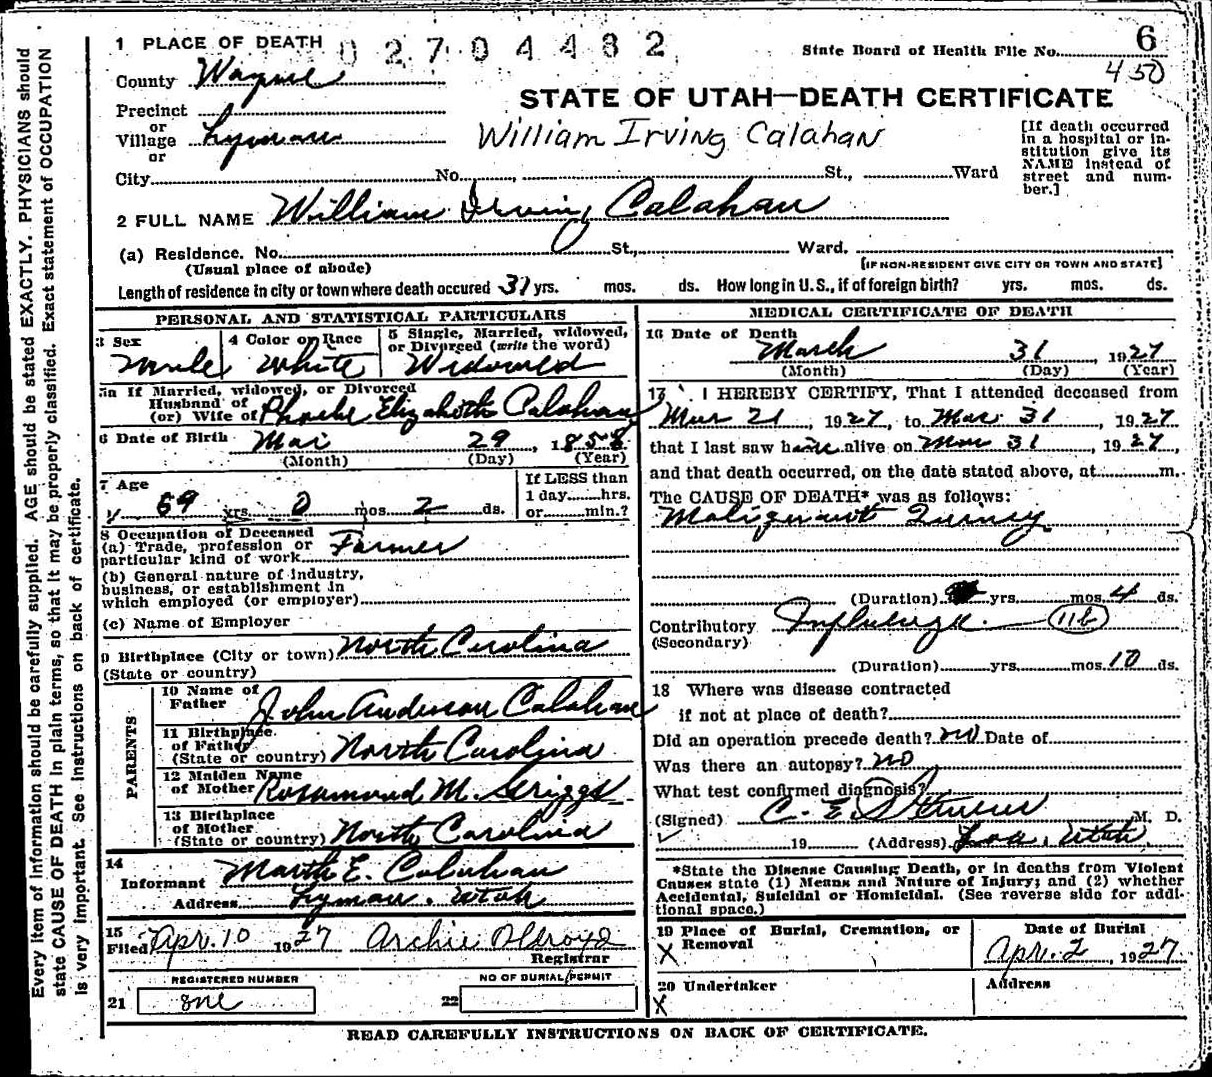 1 PLACE OF DEATH 02704482 State Board of Health File No. 6
County Wayne 450
STATE OF UTAH—DEATH CERTIFICATE
Precinct
or
Village Lyman
or
William Irving Calahan
[If death occurred in a hospital or institution give its NAME instead of street and number.]
City No. , St., Ward
2 FULL NAME William Irving Calahan
(a) Residence. No. St., Ward.
(Usual place of abode) [IF NON-RESIDENT GIVE CITY OR TOWN AND STATE]
Length of residence in city or town where death occured 31 yrs. mos. ds. How long in U.S., if of foreign birth? yrs. mos. ds.
PERSONAL AND STATISTICAL PARTICULARS
3 Sex 4 Color or Race 5 Single, Married, widowed, or Divorced (write the word)
Male White Widowed
5a If Married, widowed, or Divorced
Husband of
(or) Wife of Phoebe Elizabeth Calahan
6 Date of Birth Mar 29, 1858
(Month) (Day) (Year)
7 Age If LESS than
1 day hrs.
69 yrs. 0 mos. 2 ds. or min.?
8 Occupation of Deceased
(a) Trade, profession or
particular kind of work Farmer
(b) General nature of industry,
business, or establishment in
which employed (or employer)
(c) Name of Employer
9 Birthplace (City or town) North Carolina
(State or country)
PARENTS
10 Name of
Father John Anderson Calahan
11 Birthplace
of Father
(State or country) North Carolina
12 Maiden Name
of Mother Rosamond M. Scriggs
13 Birthplace
of Mother
(State or country) North Carolina
14
Informant Marth E. Calahan
Address Lyman, Utah
15
Filed Apr. 10 1927 Archie Oldroyd
Registrar
REGISTERED NUMBER NO OF BURIAL PERMIT
21 one 22
MEDICAL CERTIFICATE OF DEATH
16 Date of Death
March 31 1927
(Month) (Day) (Year)
17 I HEREBY CERTIFY, That I attended deceased from
Mar 21, 1927, to Mar 31, 1927
that I last saw him alive on Mar 31, 1927,
and that death occurred, on the date stated above, at m.
The CAUSE OF DEATH* was as follows:
Malignant Quinsy
(Duration) yrs. mos. 4 ds.
Contributory Influenza 11b
(Secondary)
(Duration) yrs. mos. 10 ds.
18 Where was disease contracted
if not at place of death?
Did an operation precede death? no Date of
Was there an autopsy? no
What test confirmed diagnosis?
(Signed) C. E. M. D.
19 (Address) Loa, Utah
*State the Disease Causing Death, or in deaths from Violent
Causes state (1) Means and Nature of Injury; and (2) whether
Accidental, Suicidal or Homicidal. (See reverse side for additional space.)
19 Place of Burial, Cremation, or Removal Date of Burial
X Apr. 2, 1927
20 Undertaker Address
X
READ CAREFULLY INSTRUCTIONS ON BACK OF CERTIFICATE.
Every item of information should be carefully supplied. AGE should be stated EXACTLY. PHYSICIANS should
state CAUSE OF DEATH in plain terms, so that it may be properly classified. Exact statement of OCCUPATION
is very important. See instructions on back of certificate.